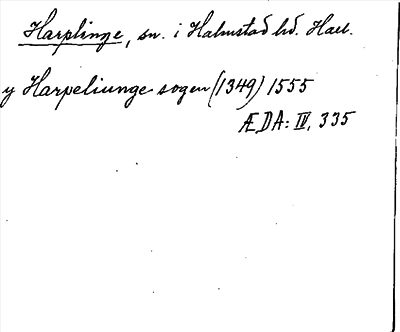 Harplinge, sn. i Halmstad hd. Hall.
y Harpeliunge sogen (1349) 1555
ÆDA: IV, 335